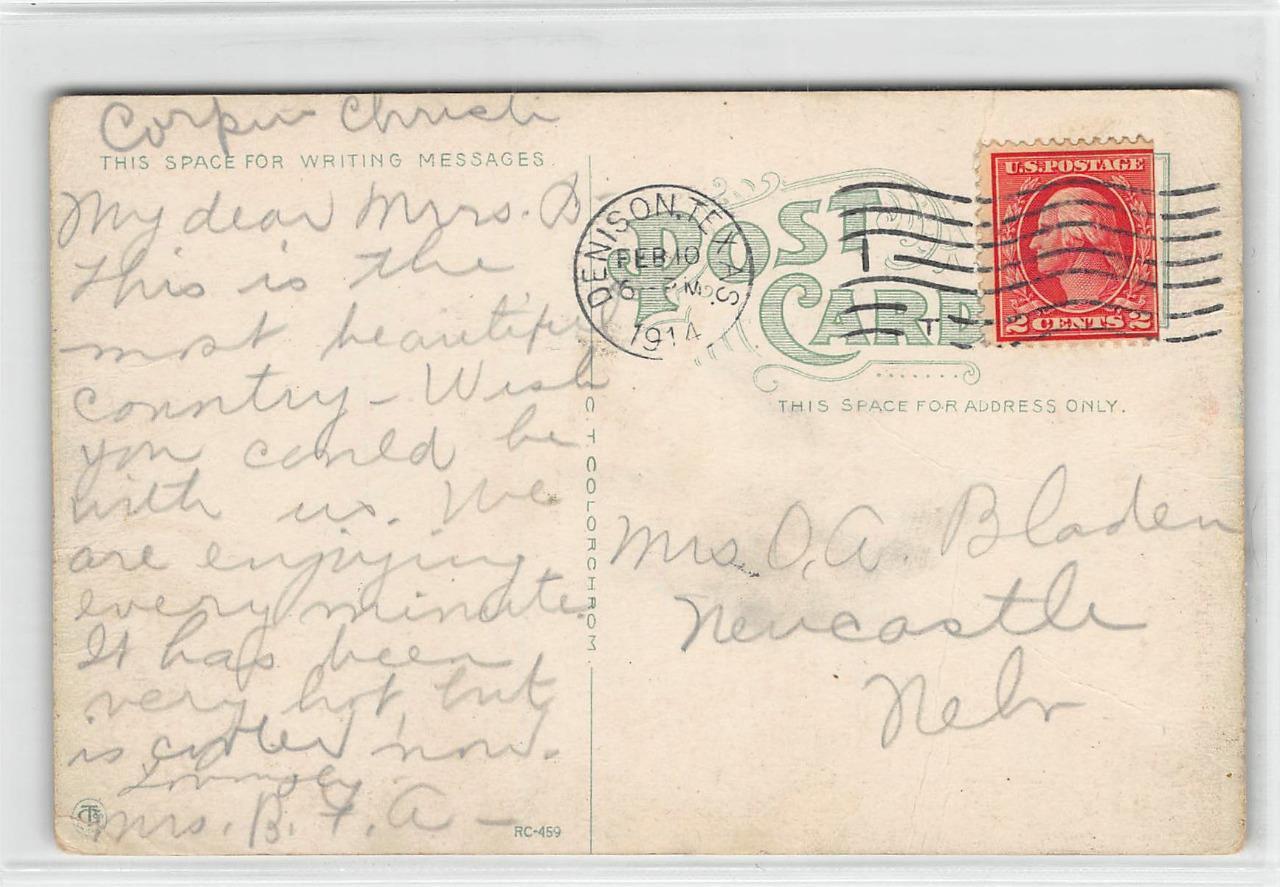 Corpus Christi
THIS SPACE FOR WRITING MESSAGES.
My dear Mrrs. B-
This is the
most beautiful
country - Wish
you could be
with us. We
are enjoying
every minute.
It has been
very hot but
is cooler now.
Lovingly
Mrs. B. F. A -
RC-459
C T COLORCHROM
POST CARD
DENISON, TEXAS
FEB 10
6 - PM
1914
U.S. POSTAGE
2 CENTS 2
THIS SPACE FOR ADDRESS ONLY.
Mrs O. A. Bladen
Newcastle
Nebr